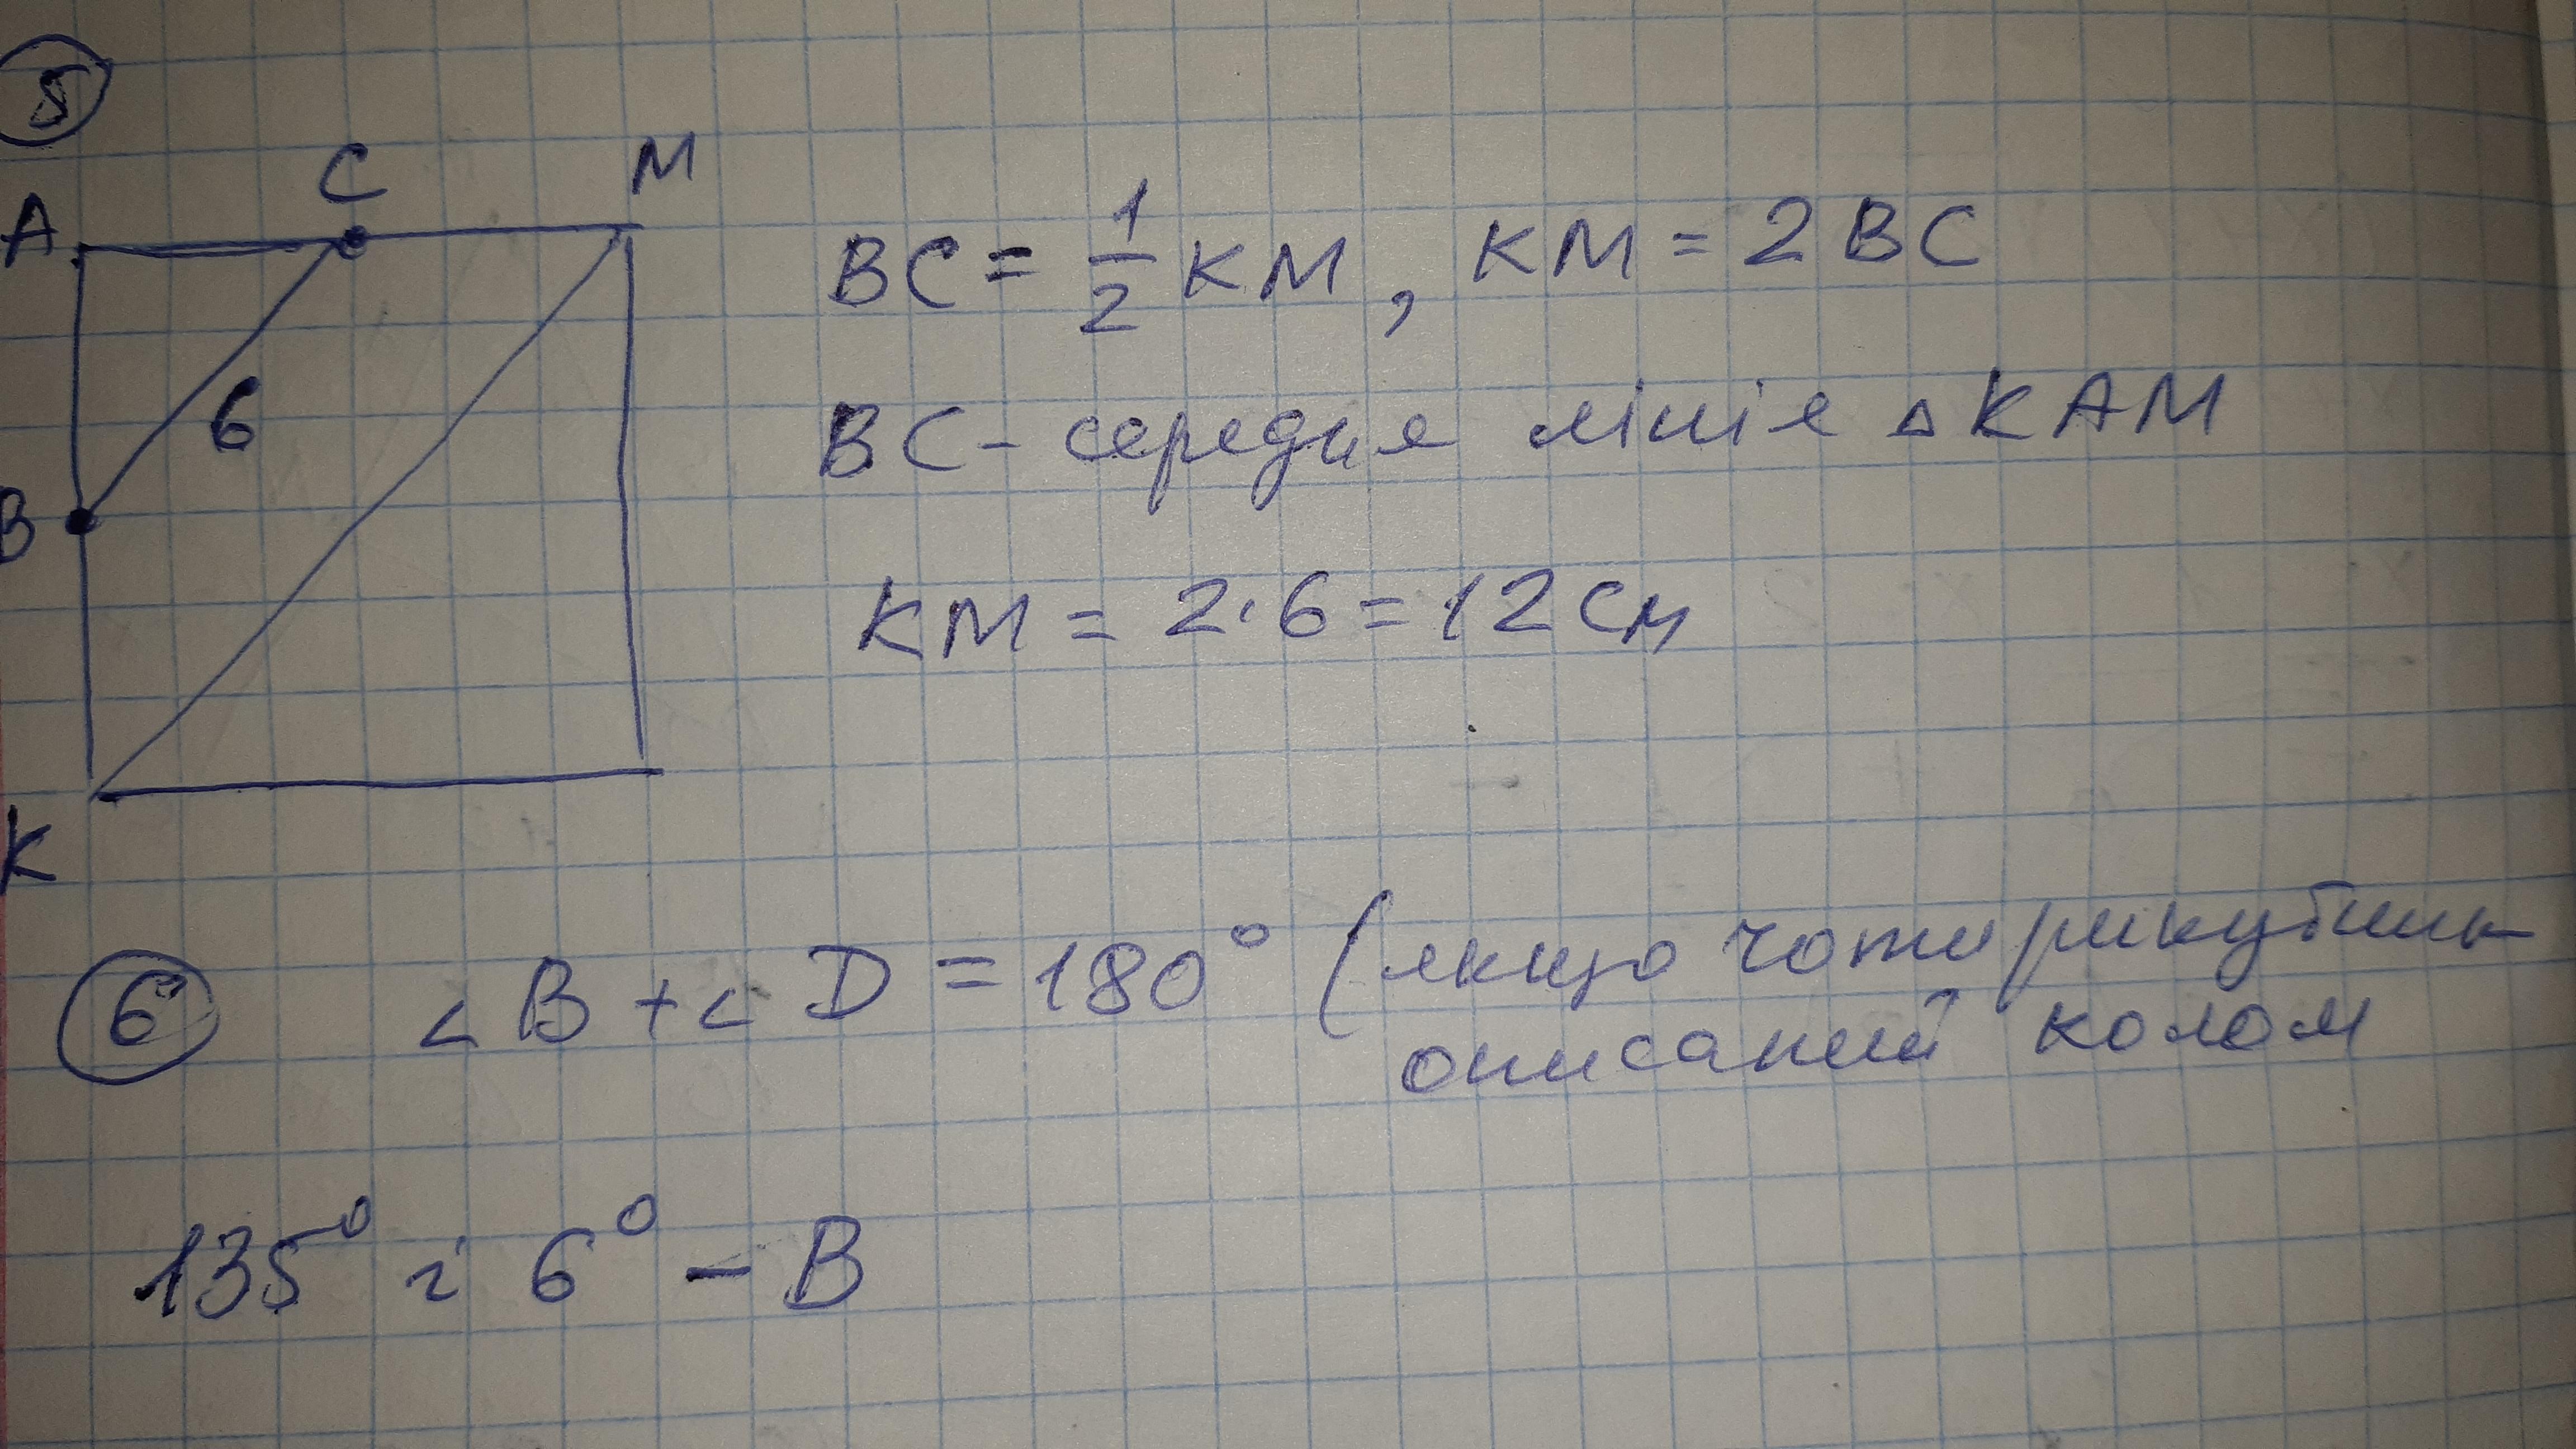 5
C M
A
B
6
K
BC = 1/2 KM, KM = 2BC
BC - середня лінія △KAM
KM = 2·6 = 12 см
6 ∠B + ∠D = 180° (якщо чотирикутник
описаний колом
135° і 6° - B